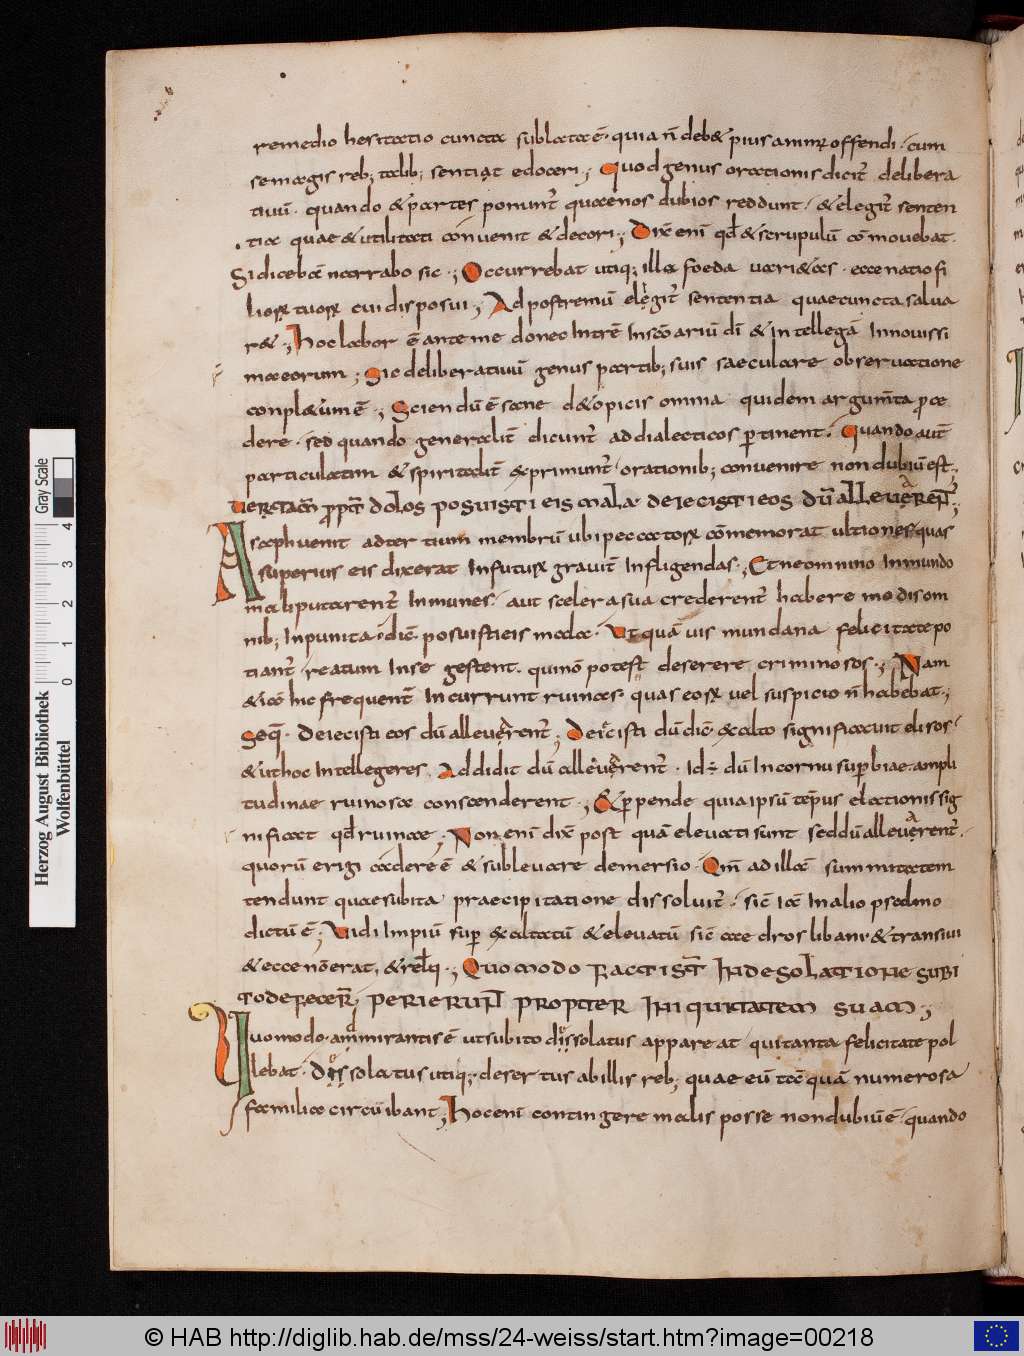 remedio hesitatio cuncta sublata ē· quia n̄ deb& pius animꝰ offendi· cum
se magis reb; talib; sentiat edoceri; Quod genus orationis dicit̄ delibera
tiuū· quando & partes ponunt̄ quae nos dubios reddunt· & elegit̄ senten
tia quae & utilitati conuenit & decori·; Dix̄ enī qd̄ & scrupulū cōmouebat·
Si dicebā narrabo sic·; Occurrebat utiq; illa foeda uari&as· ecce natio fi
liorꝝ tuorꝝ cui disposui; Ad postremū elegit̄ sententia quae cuncta salua
r&·; Hoc labor ē ante me donec intrē in scōariū dī & intellegā in nouissi
ma eorum; Sic deliberatiuū genus partib; suis saeculare obseruatione
conpl&um ē·; Sciendū ē sane d& opicis omnia quidem argum̄ta proce
dere· sed quando generalit̄ dicunt̄ ad dialecticos ꝑtinent· Quando aut̄
particulatim & spiritalit̄ exprimunt̄· orationib; conuenire non dubiū est·
UERTAM̄ PROPT̄ DOLOS POSUISTI EIS MALA· DEIECISTI EOS DŪ ALLEUARENT̄;
Asaph uenit ad tertium membrū ubi peccatorꝝ cōmemorat ultiones· quas
superius eis dixerat in futurꝝ grauit̄ infligendas·; Et ne omnino in mundo
mali putarent̄ inmunes· aut scelera sua crederent̄ habere modis om
nib; inpunita· dic̄ posuisti eis mala· Ut quāuis mundana felicitate po
tiant̄· reatum in se gestent· quinō potest deserere criminosos·; Nam
& iā hic frequent̄ incurrunt ruinas· quas eorꝝ uel suspicio n̄ habebat·;
Seq̄· Deiecisti eos dū alleuarent̄; Deiecisti dū dic̄· ex alto significauit elisos·
& ut hoc intellegeres Addidit dū alleuarent̄· Id÷ dū in cornu supbiae ampli
tudinae ruinosa conscenderent·; & ꝑpende quia ipsū tēpus elationis sig
nificat qd̄ ruinae; Non enī dix̄ post quā eleuati sunt sed dū alleuarent̄·
quorū erigi cadere ē & subleuare demersio· Qm̄ ad illā summitatem
tendunt quae subita praecipitatione dissoluit̄· sic̄ iā in alio psalmo
dictū ē; Uidi impiū sup exaltatū & eleuatū sic̄ caedros libani· & transiui
& ecce nōerat, & relq̄·; QUOMODO FACTI ST̄ IN DESOLATIONE SUBI
TO DEFECER̄· PERIERUNT PROPTER INIQUITATEM SUAM;
Quomodo· ammirantis ē ut subito dissolatus appareat qui tanta felicitate pol
lebat· Dissolatus utiq;· desertus ab illis reb; quae eū tā quā numerosa
familia circūibant; Hoc enī contingere malis posse non dubiū ē· quando
Gray Scale
4 3 2 1 0
Herzog August Bibliothek
Wolfenbüttel
© HAB http://diglib.hab.de/mss/24-weiss/start.htm?image=00218